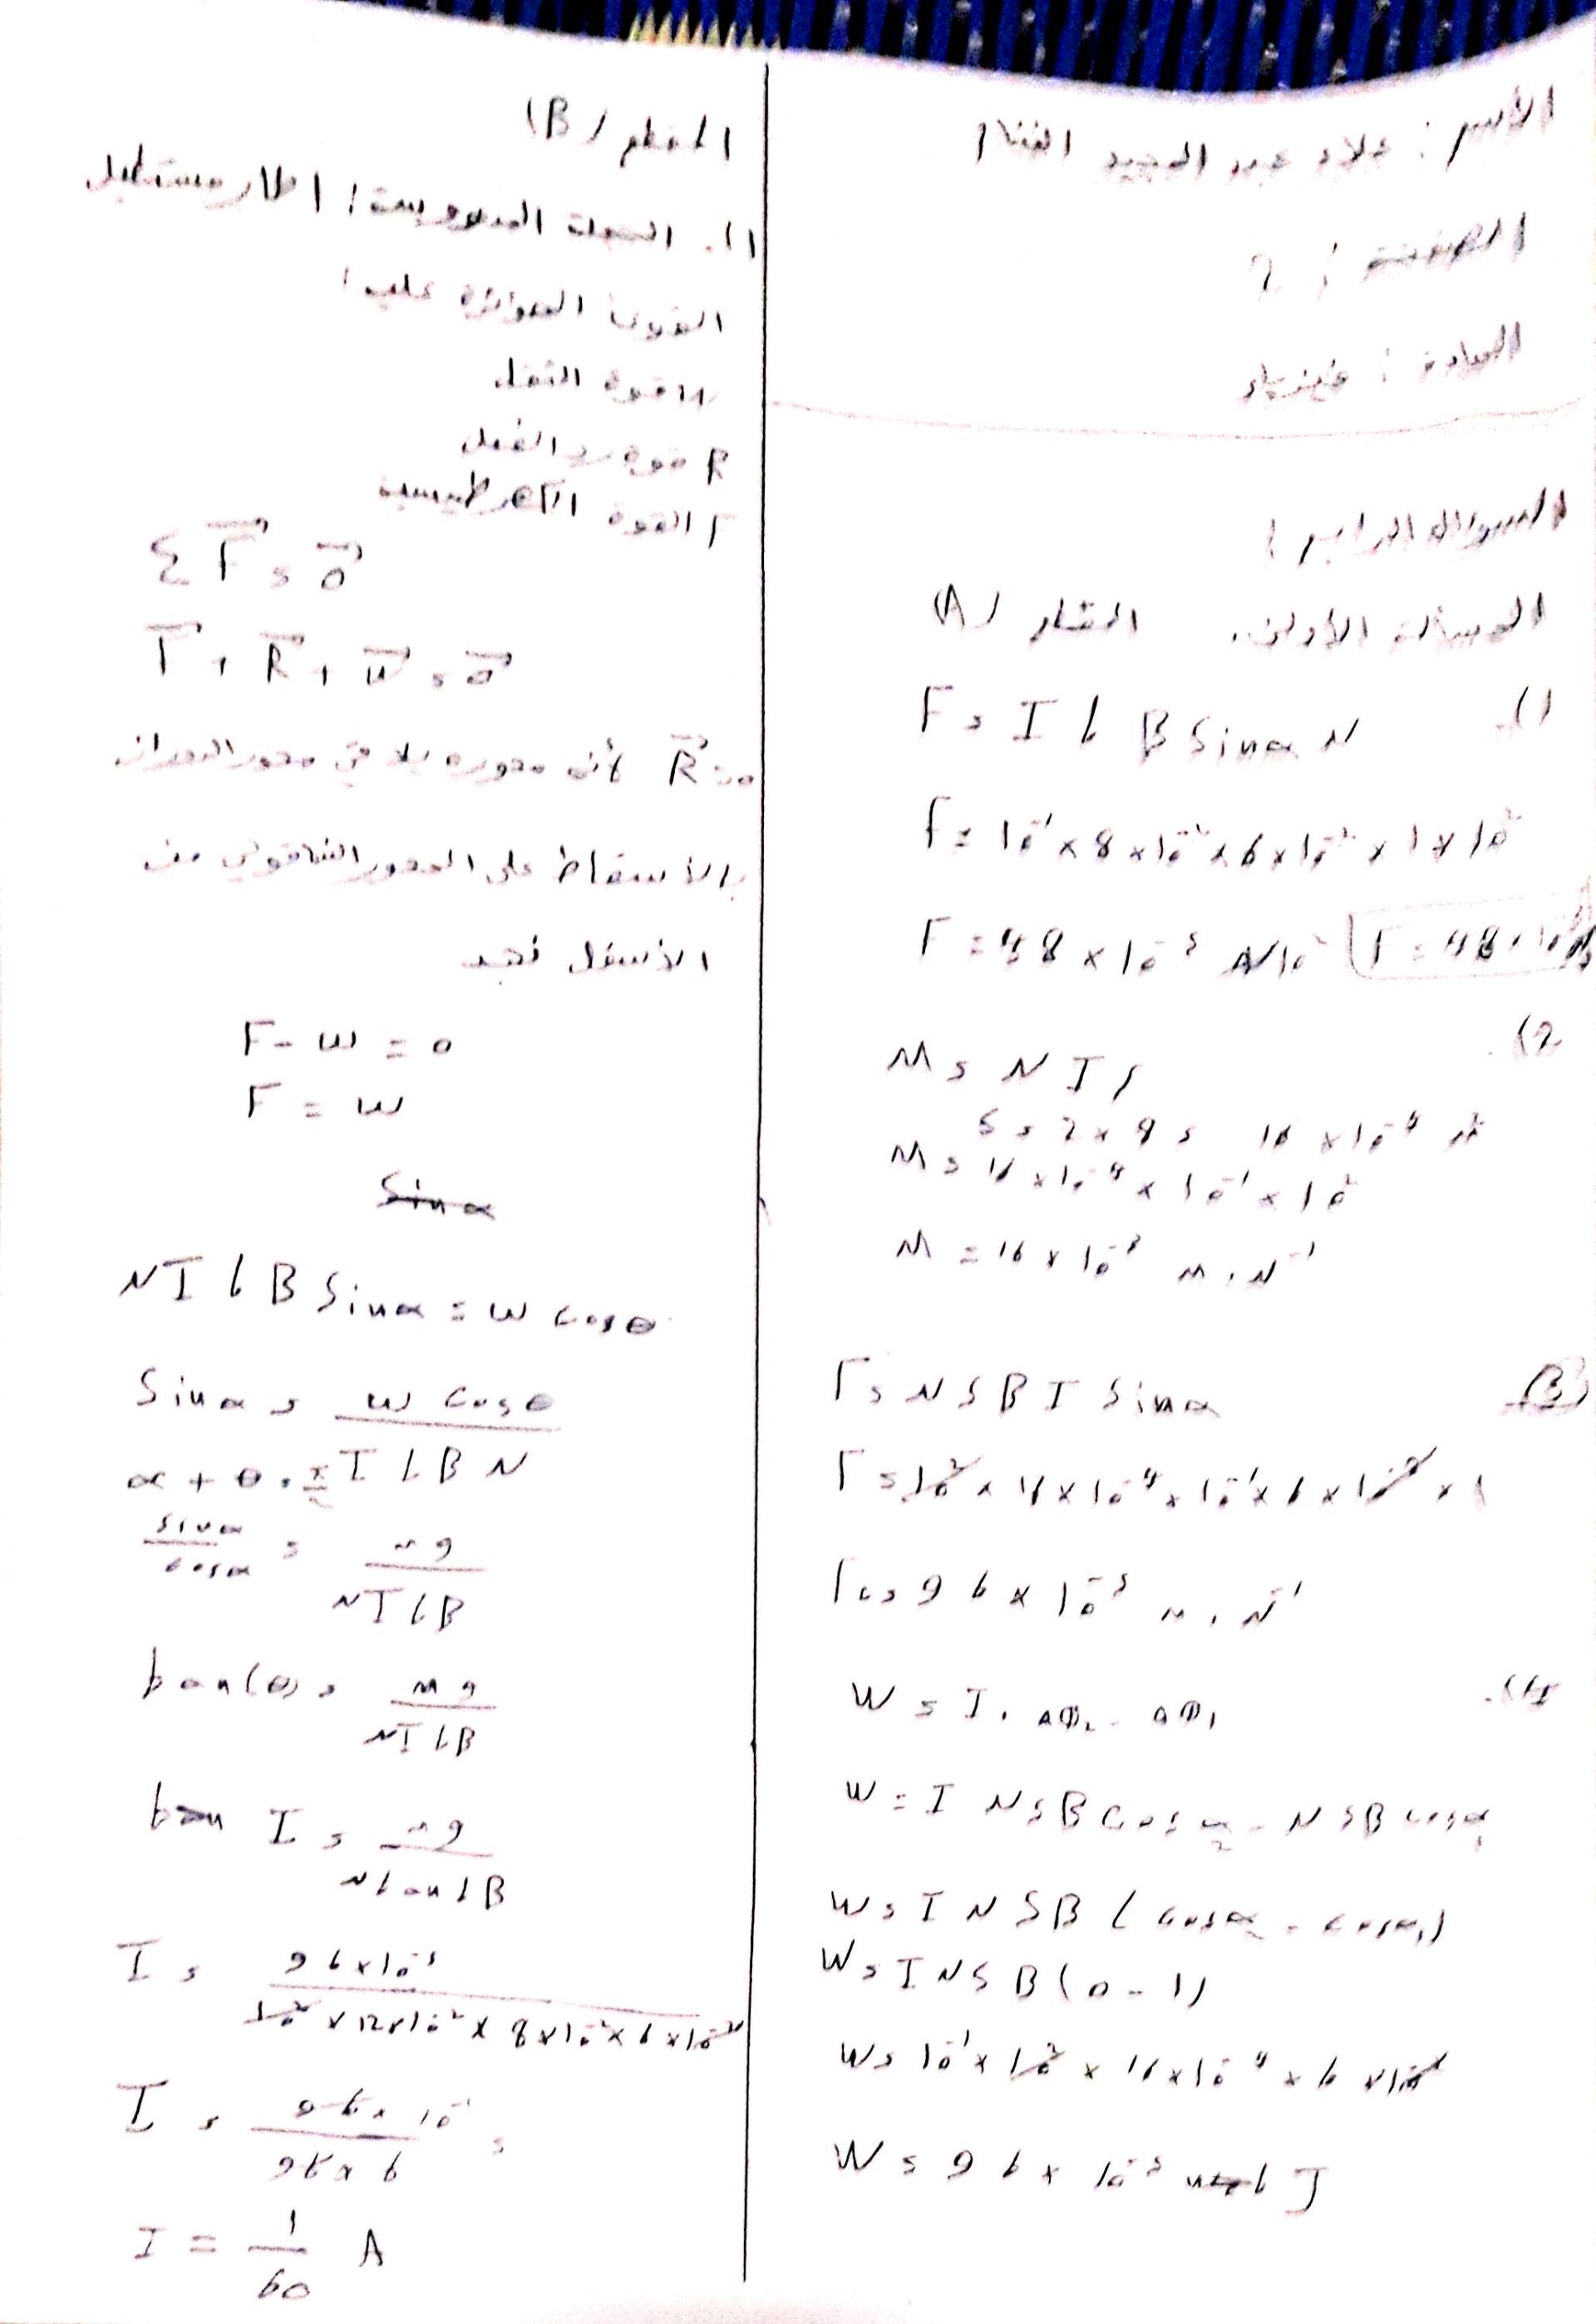 الأسم : علاء عبد المجيد
الصفحة : 2
المادة : فيزياء
السؤال الرابع :
المسألة الأولى. الشكل (A)
1).
F = I L B Sinα N
F = 10⁻¹ × 8 × 10⁻² × 6 × 10⁻² × 1 × 10²
F = 48 × 10⁻⁵ N 10² F = 48 × 10⁻³ N
2).
M = N I S
S = 2 × 8 = 16 × 10⁻⁴ m²
M = 16 × 10⁻⁴ × 10⁻¹ × 10²
M = 16 × 10⁻³ m . N⁻¹
3)
Γ = N S B I Sinα
Γ = 10² × 16 × 10⁻⁴ × 10⁻¹ × 6 × 10⁻² × 1
Γ = 96 × 10⁻⁵ m . N⁻¹
4).
W = I . ΔΦ₂ - ΔΦ₁
W = I N S B Cos α₂ - N S B cosα₁
W = I N S B ( cosα₂ - cosα₁)
W = I N S B (0 - 1)
W = 10⁻¹ × 10² × 16 × 10⁻⁴ × 6 × 10⁻²
W = 96 × 10⁻⁵ J
(B)
1). الجملة المدروسة : اطار مستطيل
القوى المؤثرة عليه :
w قوة الثقل
R قوة رد الفعل
F القوة الكهرطيسية
Σ F = 0
F + R + w = 0
R = 0 لأن محوره يلاقي محور الدوران
بالاسقاط على المحور الشاقولي من
الأسفل نجد
F - w = 0
F = w
Sinα
N I L B Sinα = w cosθ
Sinα = w cosθ / I L B N
α + θ = π/2
sinα / cosα = mg / N I L B
tan(θ) = mg / N I L B
tan I = mg / N tan L B
I = 96 × 10⁻⁵ / 10² × 12 × 10⁻² × 8 × 10⁻² × 6 × 10⁻²
I = 96 × 10⁻¹ / 96 × 6 =
I = 1 / 60 A